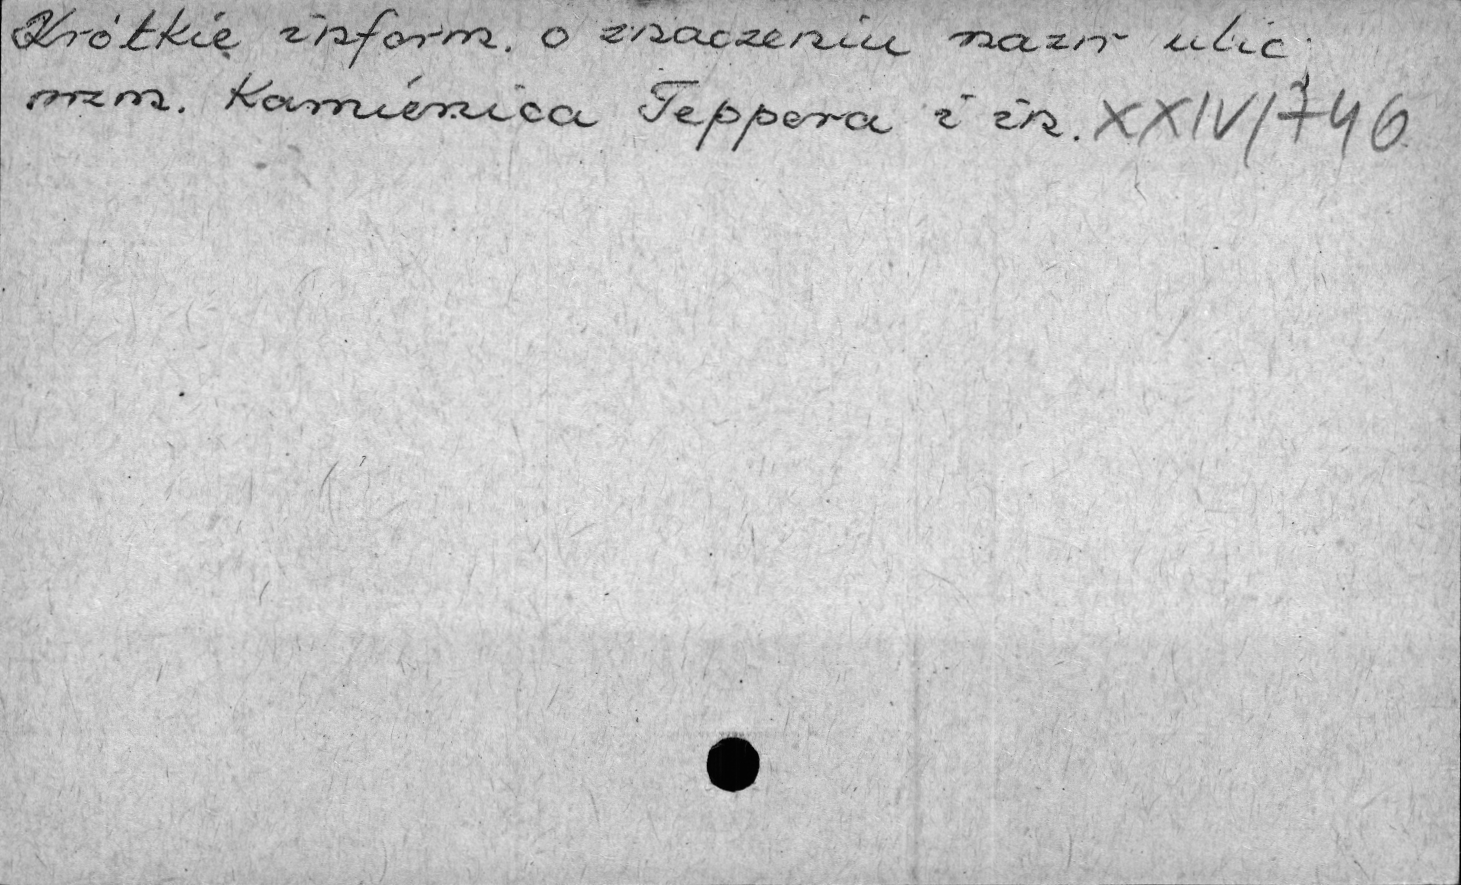 Krótkie inform. o znaczeniu nazw ulic;
wzm. Kamienica Teppera i in. XXIV/746